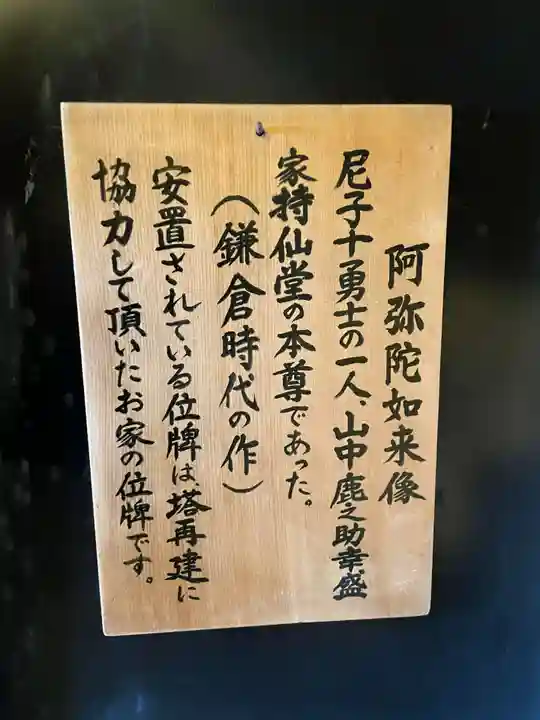 阿弥陀如来像
尼子十勇士の一人、山中鹿之助幸盛
家持仙堂の本尊であった。
(鎌倉時代の作)
安置されている位牌は、塔再建に
協力して頂いたお家の位牌です。